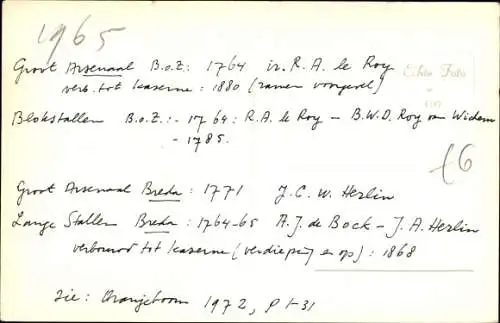 1965
Groot Arsenaal B.o.Z.: 1764 ir. R. A. le Roy
verb. tot kaserne: 1880 (ramen voorgevel)
Echte Foto
Blokstallen B.o.Z.: - 1764: R.A. le Roy - B.W.D. Roy van Widem
- 1785.
£6
Groot Arsenaal Breda: 1771 J.C.W. Herlin
Lange Stallen Breda: 1764-65 A.J. de Bock - J.A. Herlin
verbouwd tot kaserne (verdieping er op): 1868
Zie: Oranjeboom 1972, p 1-31